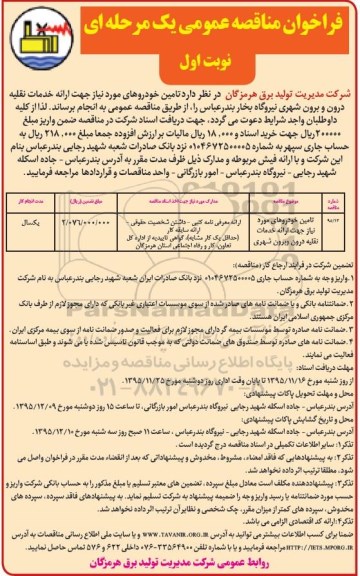 فراخوان مناقصه عمومی یک مرحله ای
نوبت اول
شرکت مدیریت تولید برق هرمزگان در نظر دارد تامین خودروهای مورد نیاز جهت ارائه خدمات نقلیه
درون و برون شهری نیروگاه بخار بندرعباس را، از طریق مناقصه عمومی به انجام برساند. لذا از کلیه
داوطلبان واجد شرایط دعوت می گردد، جهت دریافت اسناد شرکت در مناقصه ضمن واریز مبلغ
۲۰۰۰۰۰ ریال جهت خرید اسناد و ۱۸,۰۰۰ ریال مالیات بر ارزش افزوده جمعا مبلغ ۲۱۸,۰۰۰ ریال به
حساب جاری سپهر به شماره ۰۱۰۴۶۷۲۵۰۰۰۰۵ نزد بانک صادرات شعبه شهید رجایی بندرعباس بنام
این شرکت و با ارائه فیش مربوطه و مدارک ذیل ظرف مدت مقرر به آدرس بندرعباس - جاده اسکله
شهید رجایی - نیروگاه بندرعباس - امور بازرگانی - واحد مناقصات و قراردادها مراجعه فرمایید.
شماره مناقصه موضوع مناقصه مدارک مورد نیاز جهت اخذ اسناد مناقصه مبلغ تضمین (ریال) مدت انجام کار
تامین خودروهای مورد نیاز جهت ارائه خدمات نقلیه درون و برون شهری
ارائه معرفی نامه کتبی - داشتن شخصیت حقوقی - ارائه سابقه کار (حداقل یک کار مشابه)، گواهی تاییدیه از اداره کل تعاون، کار و رفاه اجتماعی استان هرمزگان
۲/۰۷۶/۰۰۰/۰۰۰ یکسال
تضمین شرکت در فرایند ارجاع کار (مناقصه):
۱. واریز وجه به شماره حساب جاری ۰۱۰۴۶۷۲۵۰۰۰۰۵ نزد بانک صادرات ایران شعبه شهید رجایی بندرعباس به نام شرکت
مدیریت تولید برق هرمزگان.
۲. ضمانتنامه بانکی و یا ضمانت نامه های صادر شده از سوی موسسات اعتباری غیر بانکی که دارای مجوز لازم از طرف بانک
مرکزی جمهوری اسلامی ایران هستند.
۳. ضمانت نامه صادره توسط موسسات بیمه گر دارای مجوز لازم برای فعالیت و صدور ضمانت نامه از سوی بیمه مرکزی ایران.
۴. ضمانت نامه های صادره توسط صندوق های ضمانت دولتی که به موجب قانون تاسیس شده یا می شوند و طبق اساسنامه
فعالیت می نمایند.
مهلت دریافت اسناد:
از روز شنبه مورخ ۱۳۹۵/۱۱/۱۶ تا پایان وقت اداری روز دوشنبه مورخ ۱۳۹۵/۱۱/۲۵.
محل و مهلت تحویل پاکات پیشنهادی:
آدرس بندرعباس - جاده اسکله شهید رجایی نیروگاه بندرعباس امور بازرگانی، تا ساعت ۱۵ روز دوشنبه مورخ ۱۳۹۵/۱۲/۰۹.
محل و تاریخ گشایش پاکات پیشنهادی:
آدرس بندرعباس - جاده اسکله شهید رجایی - نیروگاه بندرعباس، ساعت ۱۱ صبح روز سه شنبه مورخ ۱۳۹۵/۱۲/۱۰.
تذکر۱: سایر اطلاعات تکمیلی در اسناد مناقصه درج گردیده است.
تذکر۲: به پیشنهادهایی که فاقد امضاء، مشروط، مخدوش و پیشنهاداتی که بعد از انقضاء مدت مقرر در فراخوان واصل می
شود، مطلقا ترتیب اثر داده نخواهد شد.
تذکر۳: پیشنهاددهنده مکلف است معادل مبلغ سپرده، تضمین های معتبر تسلیم یا مبلغ مذکور را به حساب بانکی شرکت واریز و
حسب مورد ضمانتنامه یا رسید واریز وجه را ضمیمه پیشنهاد به شرکت تسلیم نماید. به پیشنهادهای فاقد سپرده، سپرده های
مخدوش، سپرده های کمتر از میزان مقرر، چک شخصی و نظایر آن ترتیب اثر داده نخواهد شد.
تذکر۴: ارائه کد اقتصادی الزامی می باشد.
ضمنا برای کسب اطلاعات بیشتر می توانید به آدرس WWW.TAVANIR.ORG.IR و یا سایت ملی اطلاع رسانی مناقصات به آدرس
HTTP://IETS.MPORG.IR مراجعه فرمایید و یا با شماره تلفن ۰۷۶-۳۳۵۶۴۹۰۰ داخلی ۶۲۲ و ۵۷۶ تماس حاصل نمایید.
روابط عمومی شرکت مدیریت تولید برق هرمزگان